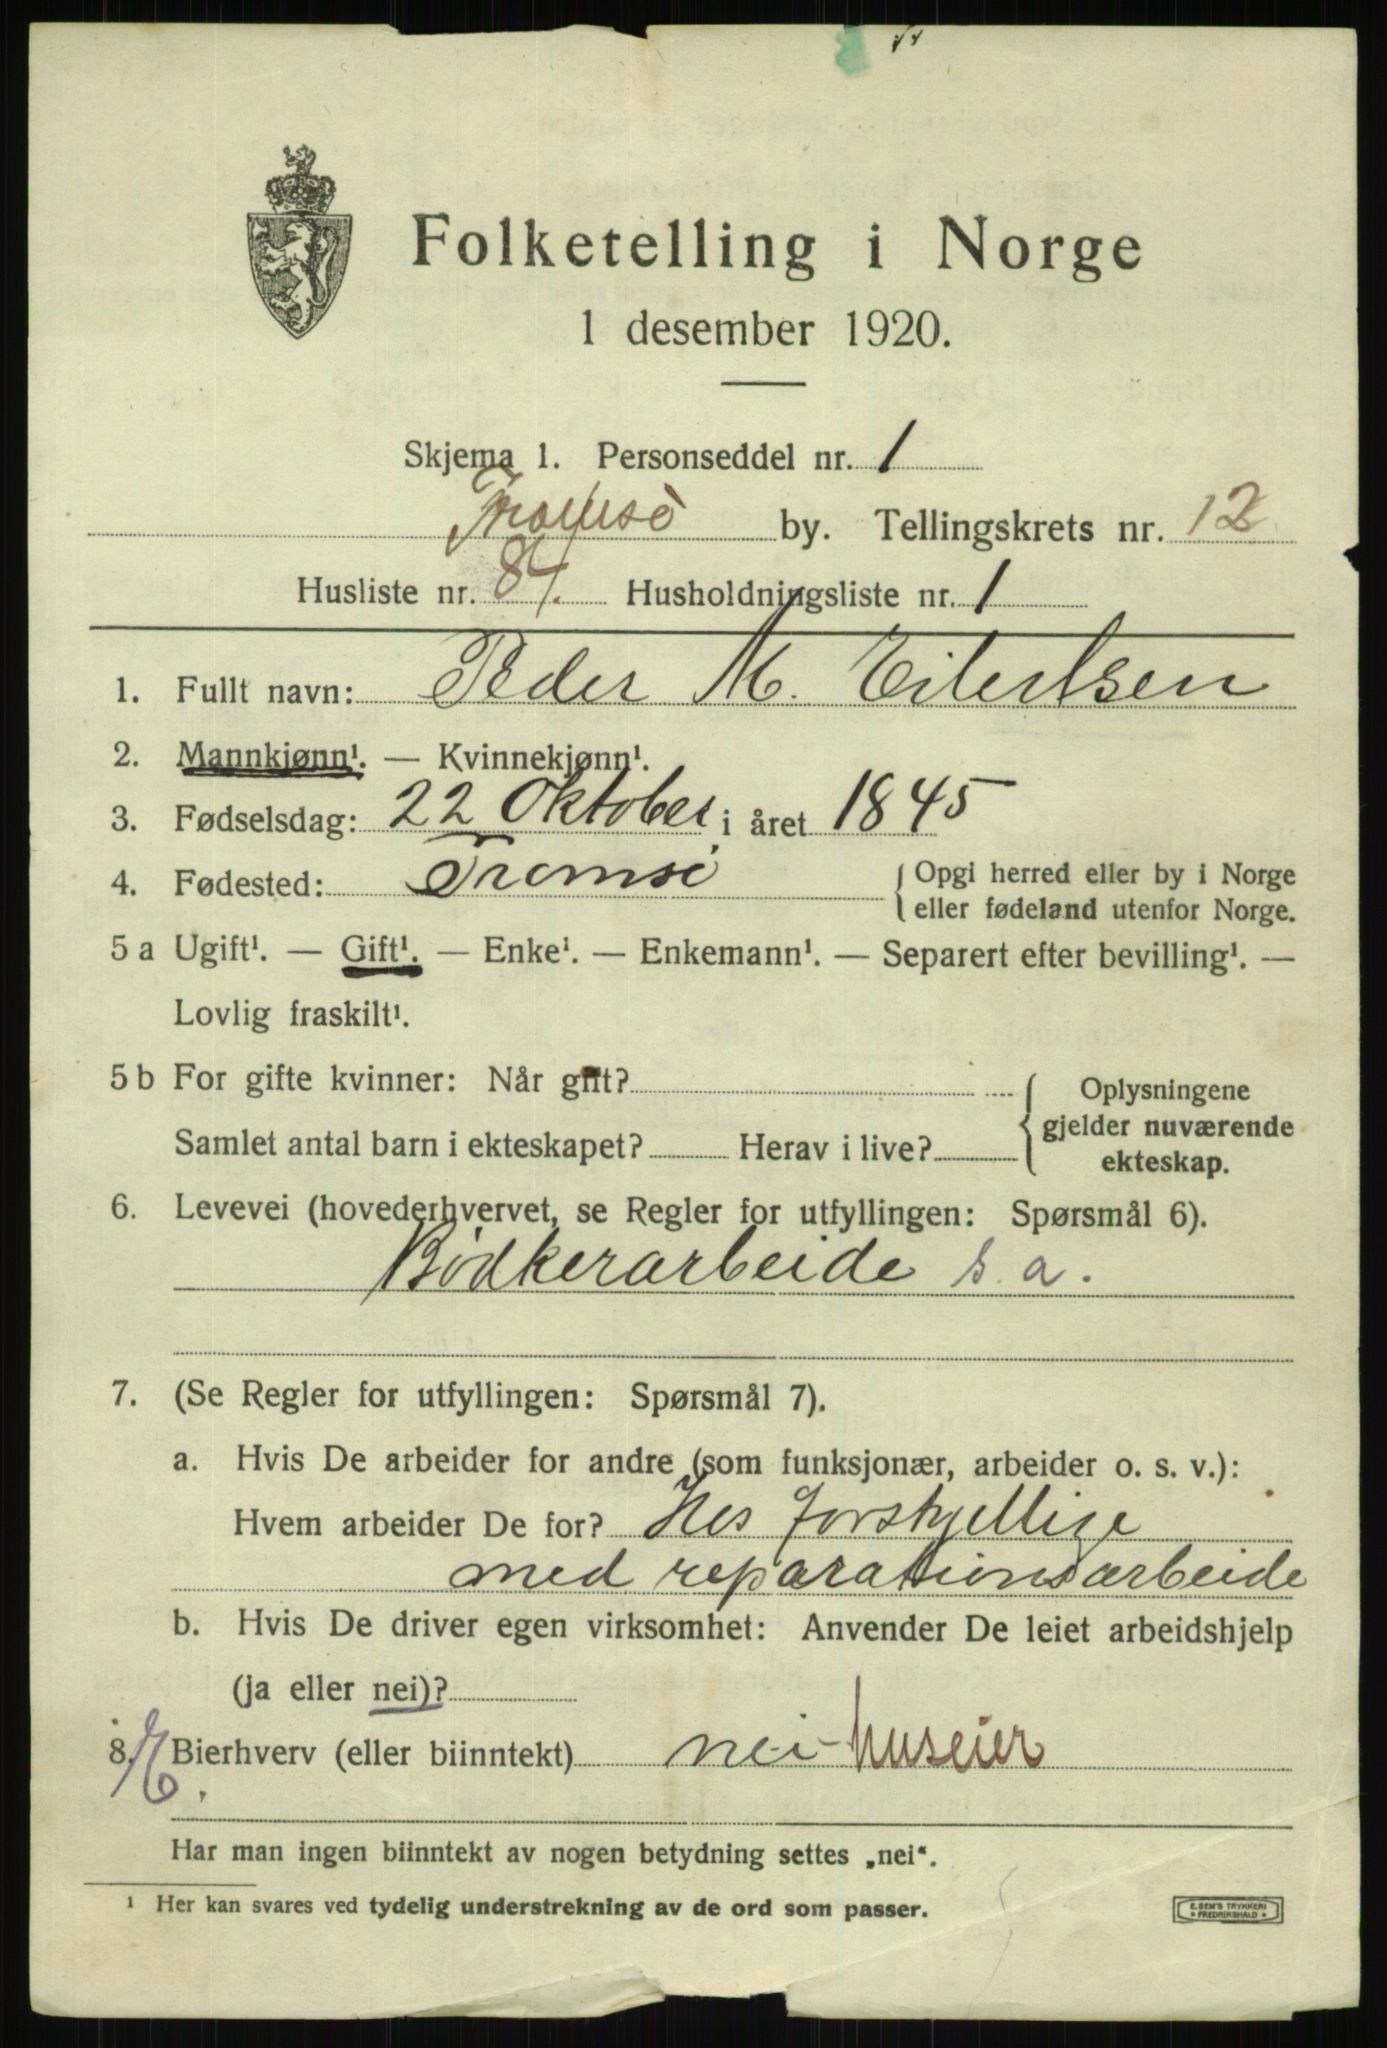 Folketelling i Norge
1 desember 1920.
Skjema 1. Personseddel nr. 1
Tromsö by. Tellingskrets nr. 12
Husliste nr. 84. Husholdningsliste nr. 1
1. Fullt navn: Peder M. Eilertsen
2. Mannkjønn¹. — Kvinnekjønn¹.
3. Fødselsdag: 22 Oktober i året 1845
4. Fødested: Tromsö { Opgi herred eller by i Norge
eller fødeland utenfor Norge.
5 a Ugift¹. — Gift¹. — Enke¹. — Enkemann¹. — Separert efter bevilling¹. —
Lovlig fraskilt¹.
5 b For gifte kvinner: Når gift? { Oplysningene
gjelder nuværende
Samlet antal barn i ekteskapet? Herav i live?
ekteskap.
6. Levevei (hovederhvervet, se Regler for utfyllingen: Spørsmål 6).
Bødkerarbeide s. a.
7. (Se Regler for utfyllingen: Spørsmål 7).
a. Hvis De arbeider for andre (som funksjonær, arbeider o. s. v.):
Hvem arbeider De for? Hos forskjellige
med reparationsarbeide
b. Hvis De driver egen virksomhet: Anvender De leiet arbeidshjelp
(ja eller nei)?
8. Bierhverv (eller biinntekt) nei - huseier
Har man ingen biinntekt av nogen betydning settes „nei“.
¹ Her kan svares ved tydelig understrekning av de ord som passer.
E. SEM'S TRYKKERI
* FREDRIKSHALD *